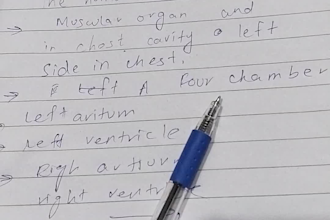 The
→ Muscular organ and
in chest cavity @ left
side in chest.
→ Left A four chamber
Left aritum
left ventricle
Righ artiu
right ventri